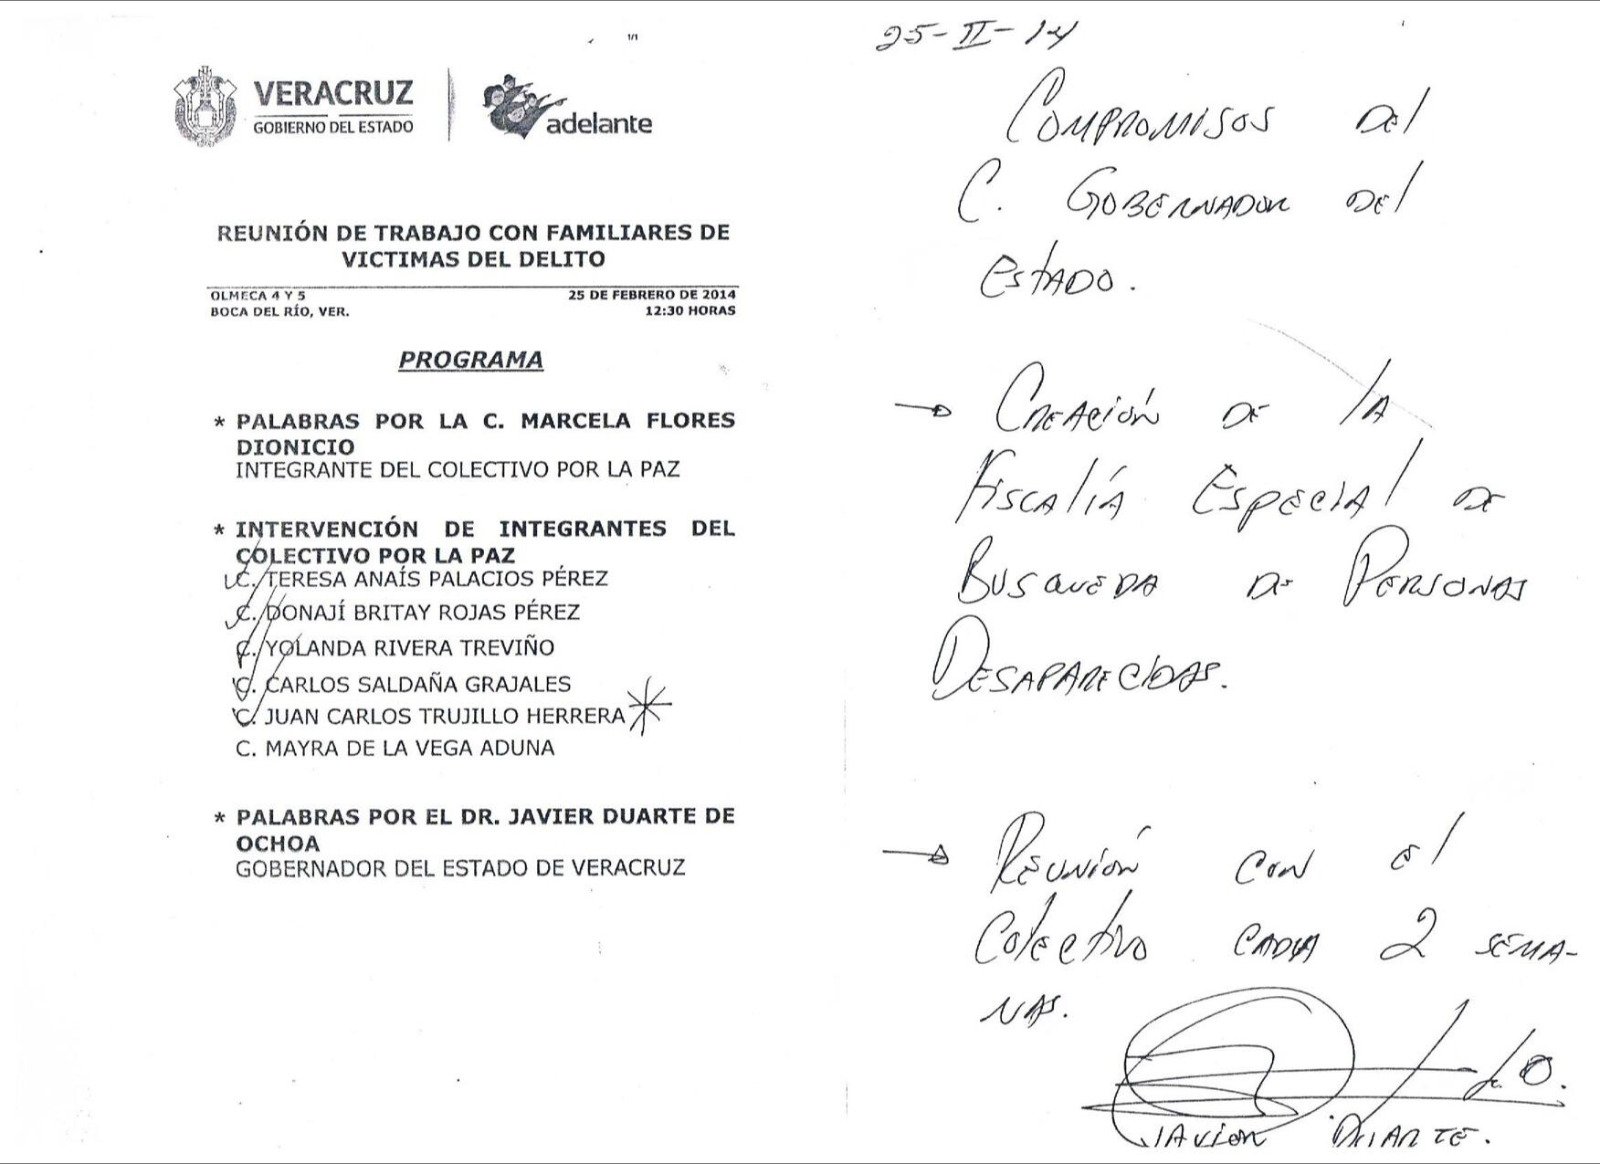 1/1
VERACRUZ
GOBIERNO DEL ESTADO
adelante
REUNIÓN DE TRABAJO CON FAMILIARES DE
VICTIMAS DEL DELITO
OLMECA 4 Y 5
25 DE FEBRERO DE 2014
BOCA DEL RÍO, VER.
12:30 HORAS
PROGRAMA
* PALABRAS POR LA C. MARCELA FLORES
DIONICIO
INTEGRANTE DEL COLECTIVO POR LA PAZ
* INTERVENCIÓN DE INTEGRANTES DEL
COLECTIVO POR LA PAZ
C. TERESA ANAÍS PALACIOS PÉREZ
C. DONAJÍ BRITAY ROJAS PÉREZ
C. YOLANDA RIVERA TREVIÑO
C. CARLOS SALDAÑA GRAJALES
C. JUAN CARLOS TRUJILLO HERRERA
C. MAYRA DE LA VEGA ADUNA
* PALABRAS POR EL DR. JAVIER DUARTE DE
OCHOA
GOBERNADOR DEL ESTADO DE VERACRUZ
25-II-14
COMPROMISOS DEl
C. GOBERNADOR DEl
ESTADO.
→ CREACIÓN DE lA
FISCALÍA ESPECIAL DE
BUSQUEDA DE PERSONAS
DESAPARECIDAS.
→ REUNIÓN CON El
COLECTIVO CADA 2 SEMA-
NAS.
JAVIER DUARTE.